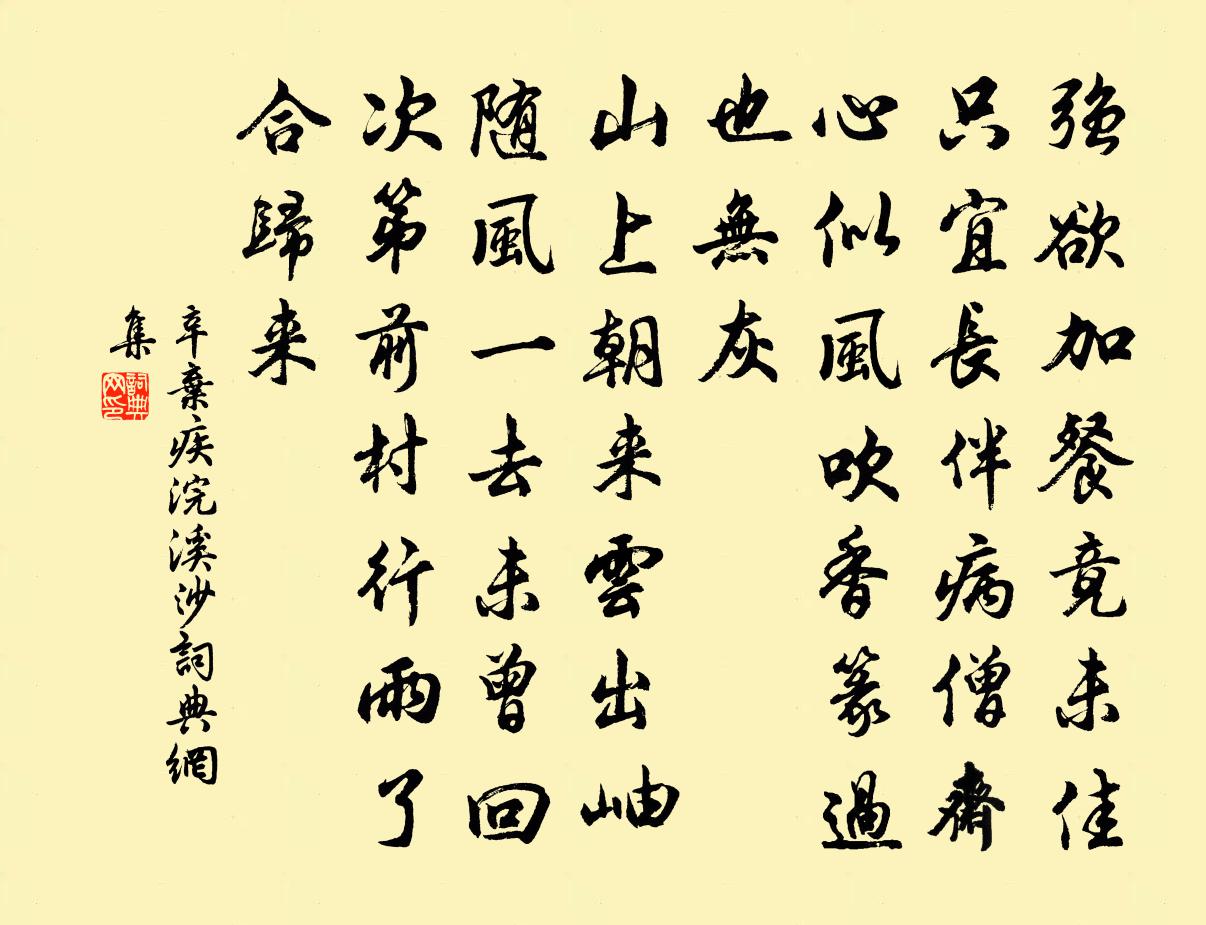 強欲加餐竟未佳
只宜長伴病僧齋
心似風吹香篆過
也無灰
山上朝来雲出岫
随風一去未曾回
次第前村行雨了
合歸来
辛棄疾浣溪沙詞典網
集
詞典网印